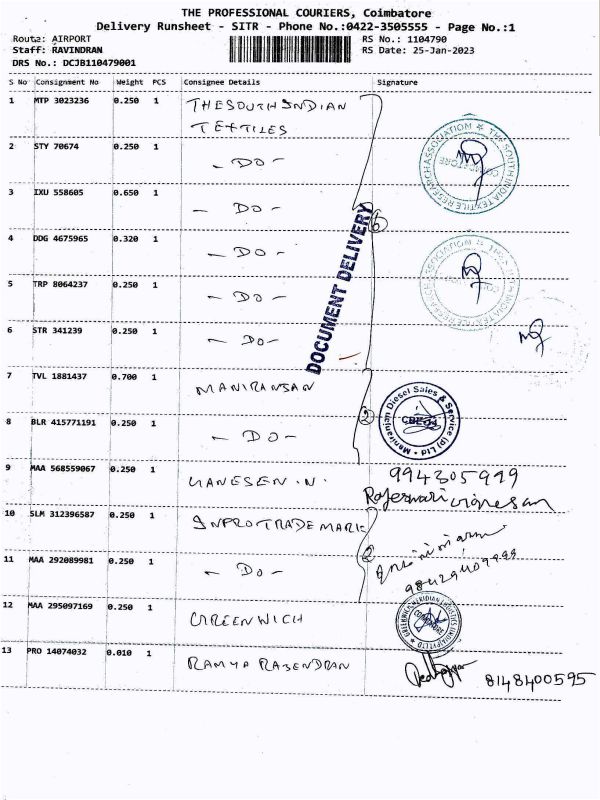 THE PROFESSIONAL COURIERS, Coimbatore
Delivery Runsheet - SITR - Phone No.:0422-3505555 - Page No.:1
Route: AIRPORT RS No.: 1104790
Staff: RAVINDRAN RS Date: 25-Jan-2023
DRS No.: DCJB110479001
S No Consignment No Weight PCS Consignee Details Signature
1 MTP 3023236 0.250 1 THE SOUTH INDIAN
TEXTILES
2 STY 70674 0.250 1 - DO -
3 IXU 558605 0.650 1 - DO -
4 DDG 4675965 0.320 1 - DO -
5 TRP 8064237 0.250 1 - DO -
6 STR 341239 0.250 1 - DO -
DOCUMENT DELIVERY
6
THE SOUTH INDIA TEXTILE RESEARCH ASSOCIATION
COIMBATORE
7 TVL 1881437 0.700 1 MANIRANJAN
8 BLR 415771191 0.250 1 - DO -
2
Maniranjan Diesel Sales & Service (p) Ltd
CBE-14
9 MAA 568559067 0.250 1 GANESEN. N.
994305999
Rajeswari vignesan
10 SLM 312396587 0.250 1 INPROTRADEMARK
11 MAA 292089981 0.250 1 - DO -
2
12 MAA 295097169 0.250 1 GREENWICH
GREENWICH MERIDIAN LOGISTICS (INDIA) PVT LTD
COIMBATORE
13 PRO 14074032 0.010 1 RAMYA RAJENDRAN
8148400595